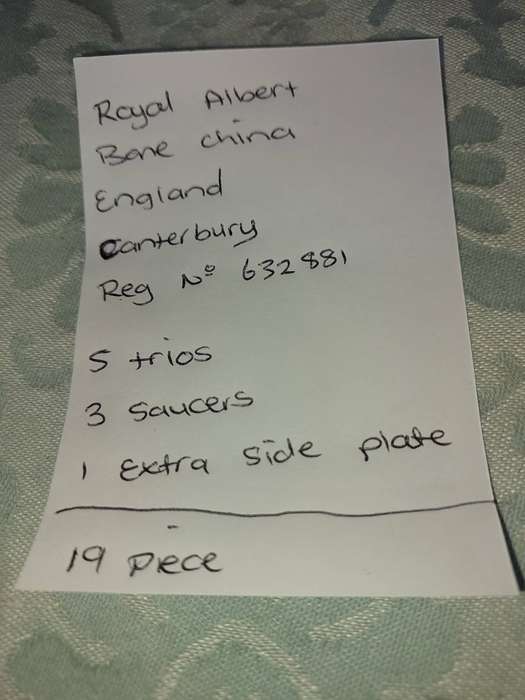 Royal Albert
Bone china
England
Canterbury
Reg Nº 632881
5 trios
3 saucers
1 Extra side plate
19 piece